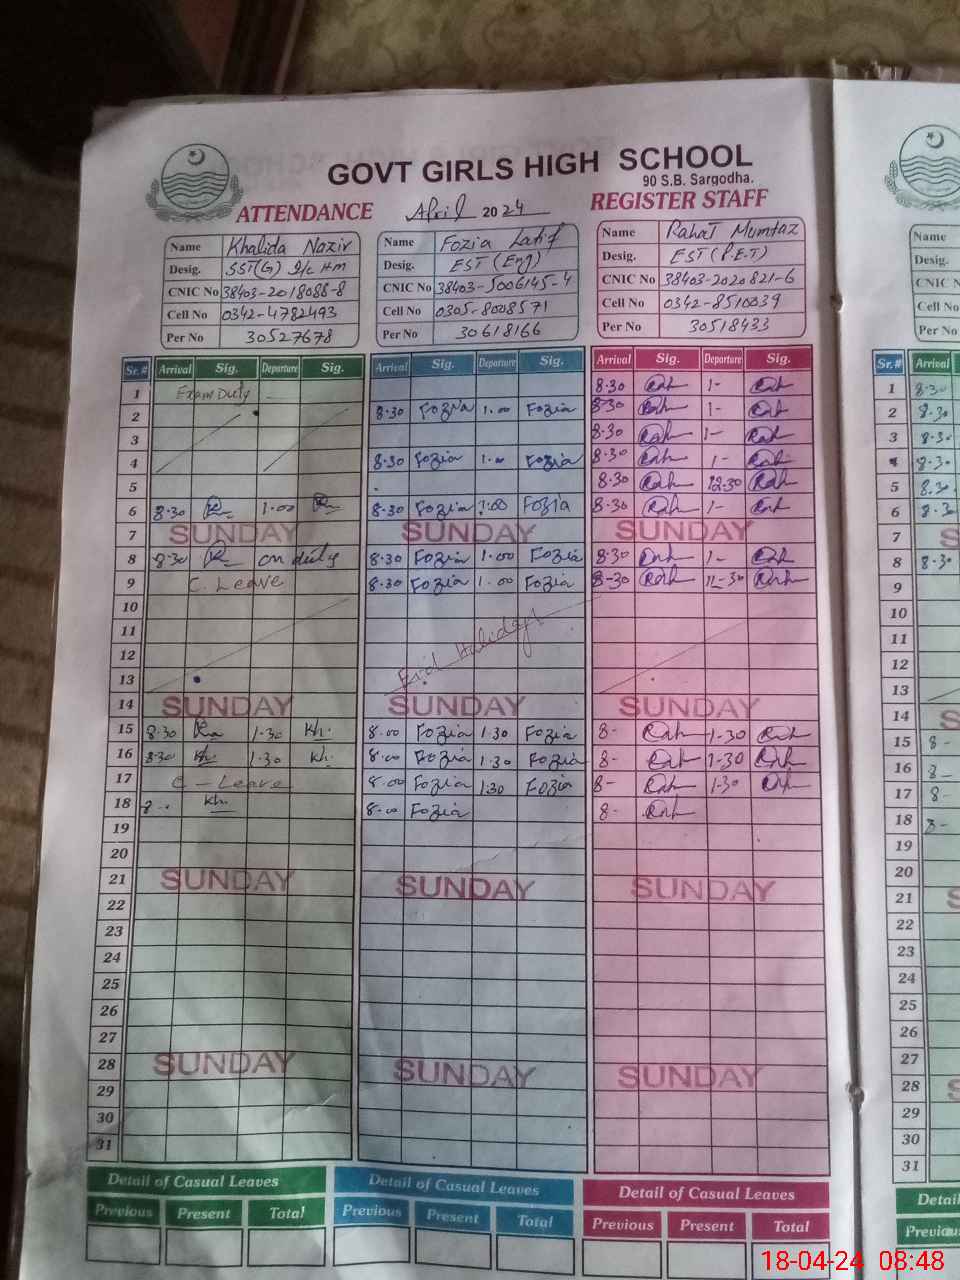 GOVT GIRLS HIGH SCHOOL
90 S.B. Sargodha.
ATTENDANCE April 2024 REGISTER STAFF
Name Khalida Nazir Name Fozia Latif Name Rahat Mumtaz Name
Desig. SST(G) I/c Hm Desig. EST (Eng) Desig. EST (P.E.T) Desig.
CNIC No 38403-2018088-8 CNIC No 38403-5006145-4 CNIC No 38403-2020821-6 CNIC No
Cell No 0342-4782493 Cell No 0305-8008571 Cell No 0342-8510039 Cell No
Per No 30527678 Per No 30618166 Per No 30518433 Per No
Sr.# Arrival Sig. Departure Sig. Arrival Sig. Departure Sig. Arrival Sig. Departure Sig. Sr.# Arrival
1 Exam Duty 8.30 1- 1 8.30
2 8.30 Fozia 1.00 Fozia 8.30 1- 2 8.30
3 8.30 1- 3 8.30
4 8.30 Fozia 1.00 Fozia 8.30 1- 4 8.30
5 8.30 12.30 5 8.30
6 8.30 1.00 8.30 Fozia 1.00 Fozia 8.30 1- 6 8.30
7 SUNDAY SUNDAY SUNDAY 7
8 8.30 on duty 8.30 Fozia 1.00 Fozia 8.30 1- 8 8.30
9 C. Leave 8.30 Fozia 1.00 Fozia 8-30 11-30 9
10 10
11 Eid Holidays 11
12 12
13 13
14 SUNDAY SUNDAY SUNDAY 14
15 8.30 1-30 Kh. 8.00 Fozia 1.30 Fozia 8- 1-30 15 8-
16 8.30 Kh. 1.30 Kh. 8.00 Fozia 1.30 Fozia 8- 1-30 16 8-
17 C-Leave 8.00 Fozia 1.30 Fozia 8- 1-30 17 8-
18 8-. Kh. 8.00 Fozia 8- 18 8-
19 19
20 20
21 SUNDAY SUNDAY SUNDAY 21
22 22
23 23
24 24
25 25
26 26
27 27
28 SUNDAY SUNDAY SUNDAY 28
29 29
30 30
31 31
Detail of Casual Leaves Detail of Casual Leaves Detail of Casual Leaves
Previous Present Total Previous Present Total Previous Present Total
18-04-24 08:48